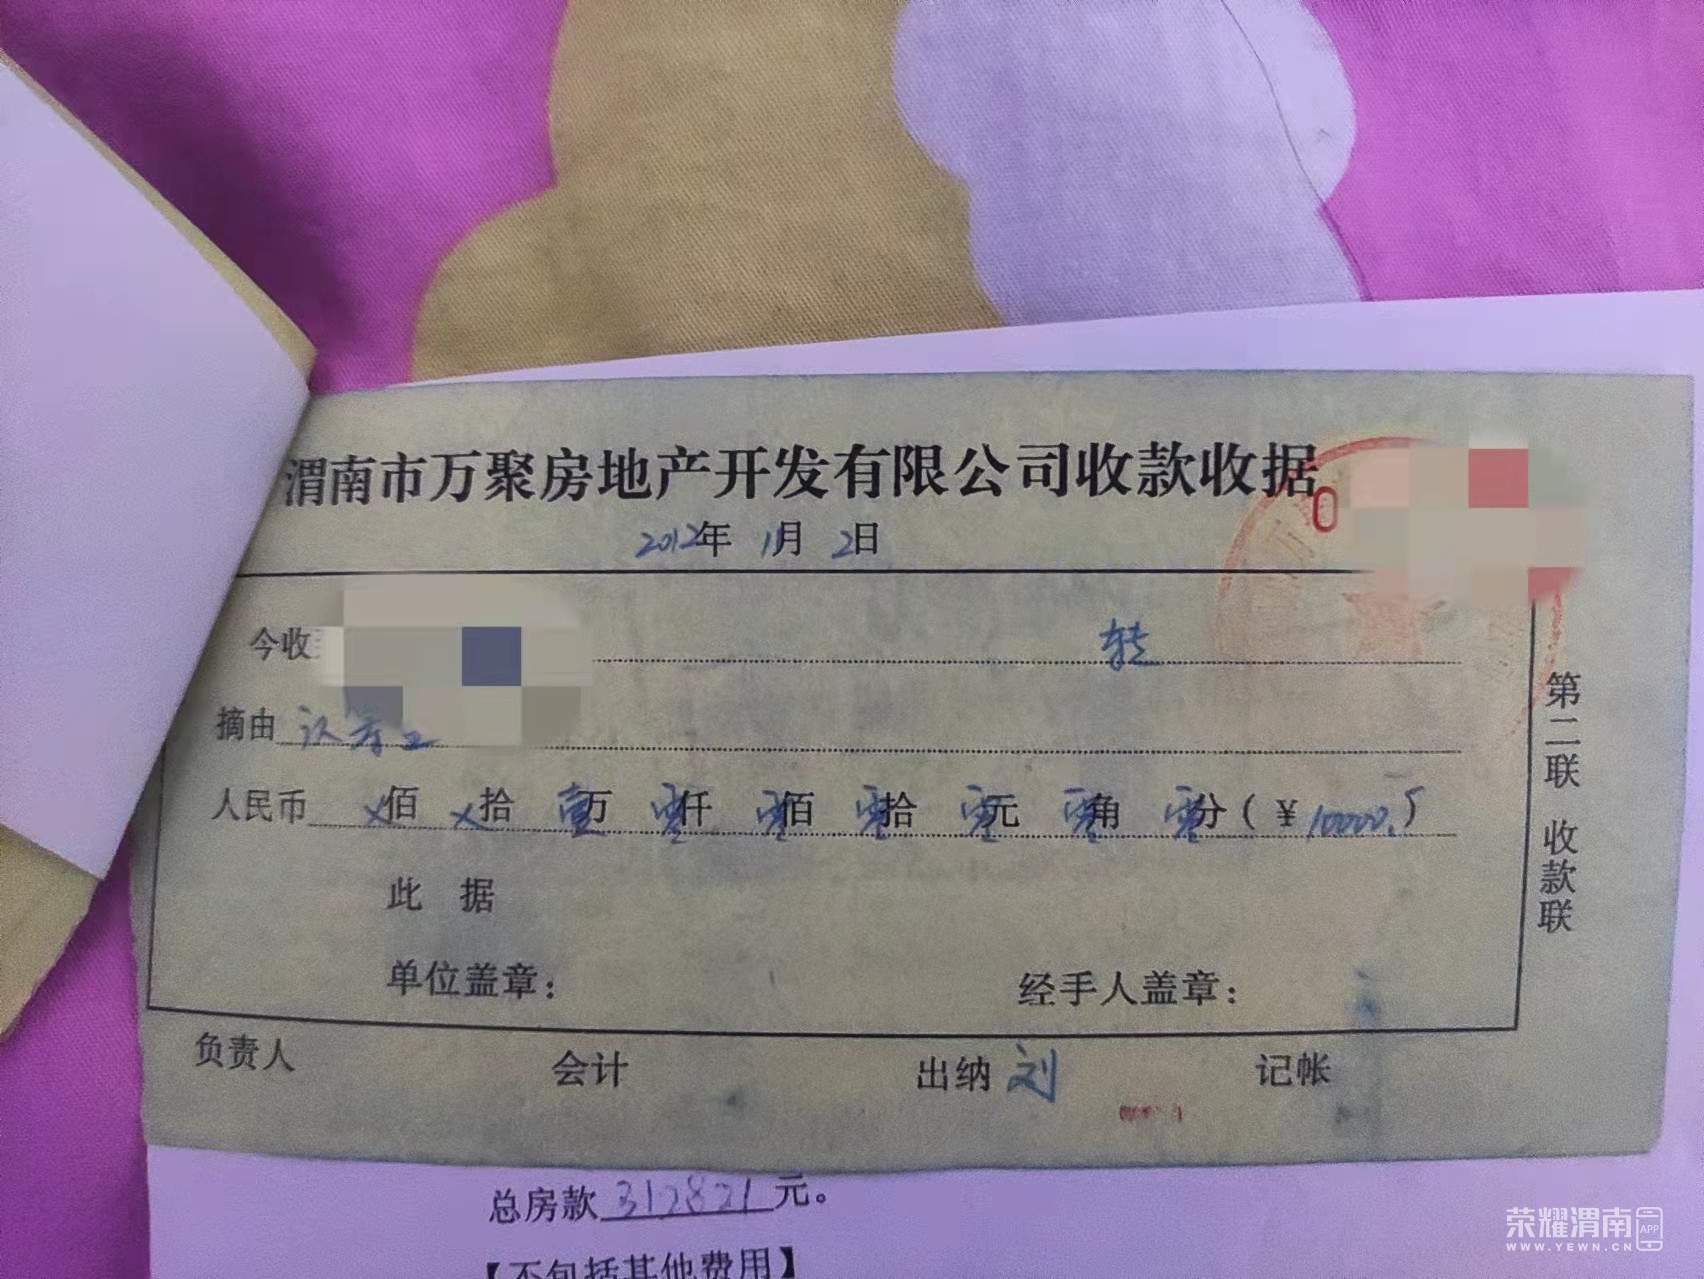 渭南市万聚房地产开发有限公司收款收据
0
2012年 11月 2日
今收
转
摘由
人民币 ×佰 ×拾 壹万 零仟 零佰 零拾 零元 零角 零分(¥10000.)
此 据
单位盖章:
经手人盖章:
第二联 收款联
负责人 会计 出纳 刘 记帐
总房款 312821 元。
【不包括其他费用】
荣耀渭南 APP
WWW.YEWN.CN